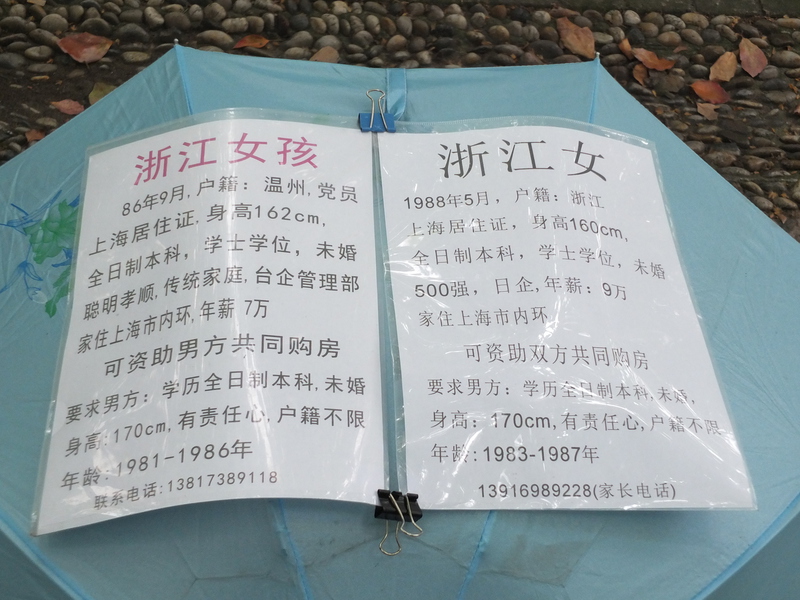 浙江女孩
86年9月,户籍：温州,党员
上海居住证,身高162cm,
全日制本科，学士学位，未婚
聪明孝顺,传统家庭,台企管理部
家住上海市内环,年薪 7万
可资助男方共同购房
要求男方：学历全日制本科,未婚
身高:170cm,有责任心,户籍不限
年龄:1981-1986年
联系电话:13817389118
浙江女
1988年5月，户籍：浙江
上海居住证，身高160cm,
全日制本科，学士学位，未婚
500强，日企,年薪：9万
家住上海市内环
可资助双方共同购房
要求男方：学历全日制本科,未婚,
身高：170cm,有责任心,户籍不限
年龄:1983-1987年
13916989228(家长电话)